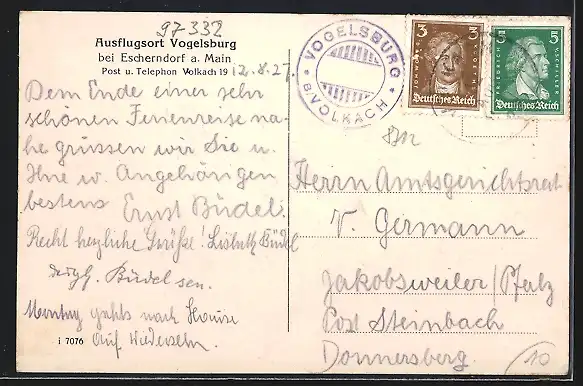 97-332
Ausflugsort Vogelsburg
bei Escherndorf a. Main
Post u. Telephon Volkach 19 12.8.27.
Dem Ende einer sehr
schönen Ferienreise na-
he grüssen wir Sie u.
Ihre w. Angehörigen
bestens Ernst Büdel.
Recht herzliche Grüße! Lisbeth Büdel
desgl. Büdel sen.
Montag gehts nach Hause
Auf Wiedersehn.
i 7076
VOGELSBURG
B/VOLKACH
3 3
Deutsches Reich
5 5
FRIEDRICH V. SCHILLER
Deutsches Reich
8702
Herrn Amtsgerichtsrat
V. Germann
Jakobsweiler/Pfalz
Post Steinbach
Donnersberg.
10